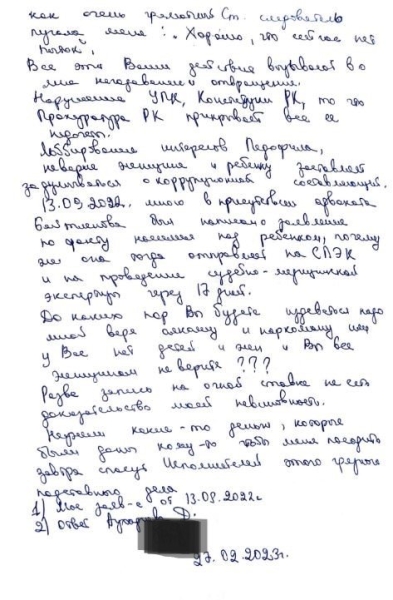 как очень грамотный Ст. следователь
пугала меня: "Хорошо, что сейчас нет
пыток",
Все эти Ваши действия вызывают во
мне негодование и отвращение.
Нарушения УПК, Конституции РК, то что
Прокуратура РК прикрывает все её
недочеты.
Лоббирование интересов Педофила,
неверие женщине и ребенку заставляет
задумываться о коррупционной составляющей.
13.09.2022г. мною в присутствии адвоката
было написано заявление
по факту насилия над ребенком, почему
же она тогда отправляет на СПЭК
и на проведение судебно-медицинской
экспертизы через 17 дней.
До каких пор Вы будете издеваться надо
мной веря алкашу и наркоману или
у Вас нет детей и жен и Вы все
женщинам не верите ???
Разве запись на очной ставке не есть
доказательство моей невиновности.
Неужели какие-то деньги, которые
были даны кому-то чтоб меня посадить
завтра спасут Исполнителей этого грязного
подставного дела
1) Мое заяв-е от 13.09.2022г
2) Ответ Д.
27.02.2023г.